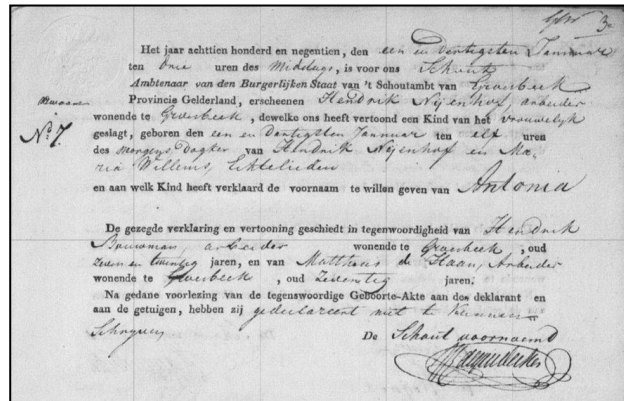 3
Het jaar achttien honderd en negentien, den een en dertigsten Januar
ten drie uren des Middags, is voor ons Schout
Ambtenaar van den Burgerlijken Staat van 't Schoutambt van Groesbeek
Provincie Gelderland, erscheenen Hendrik Nijenhof, arbeider
wonende te Groesbeek, dewelke ons heeft vertoond een Kind van het vrouwelyk
No 7.
geslagt, geboren den een en dertigsten Januar ten elf uren
des morgens Dogter van Hendrik Nijenhof en Ma-
ria Willems, Echtelieden
en aan welk Kind heeft verklaard de voornaam te willen geven van Antonia
De gezegde verklaring en vertooning geschiedt in tegenwoordigheid van Hendrik
Bouwman, arbeider wonende te Groesbeek, oud
zeven en twintig jaren, en van Matthens de Haan, Arbeider
wonende te Groesbeek, oud Zeventig jaren.
Na gedane voorlezing van de tegenswoordige Geboorte-Akte aan den deklarant en
aan de getuigen, hebben zij gedeclareert niet te Kunnen
Schryven
De Schout voornoemd